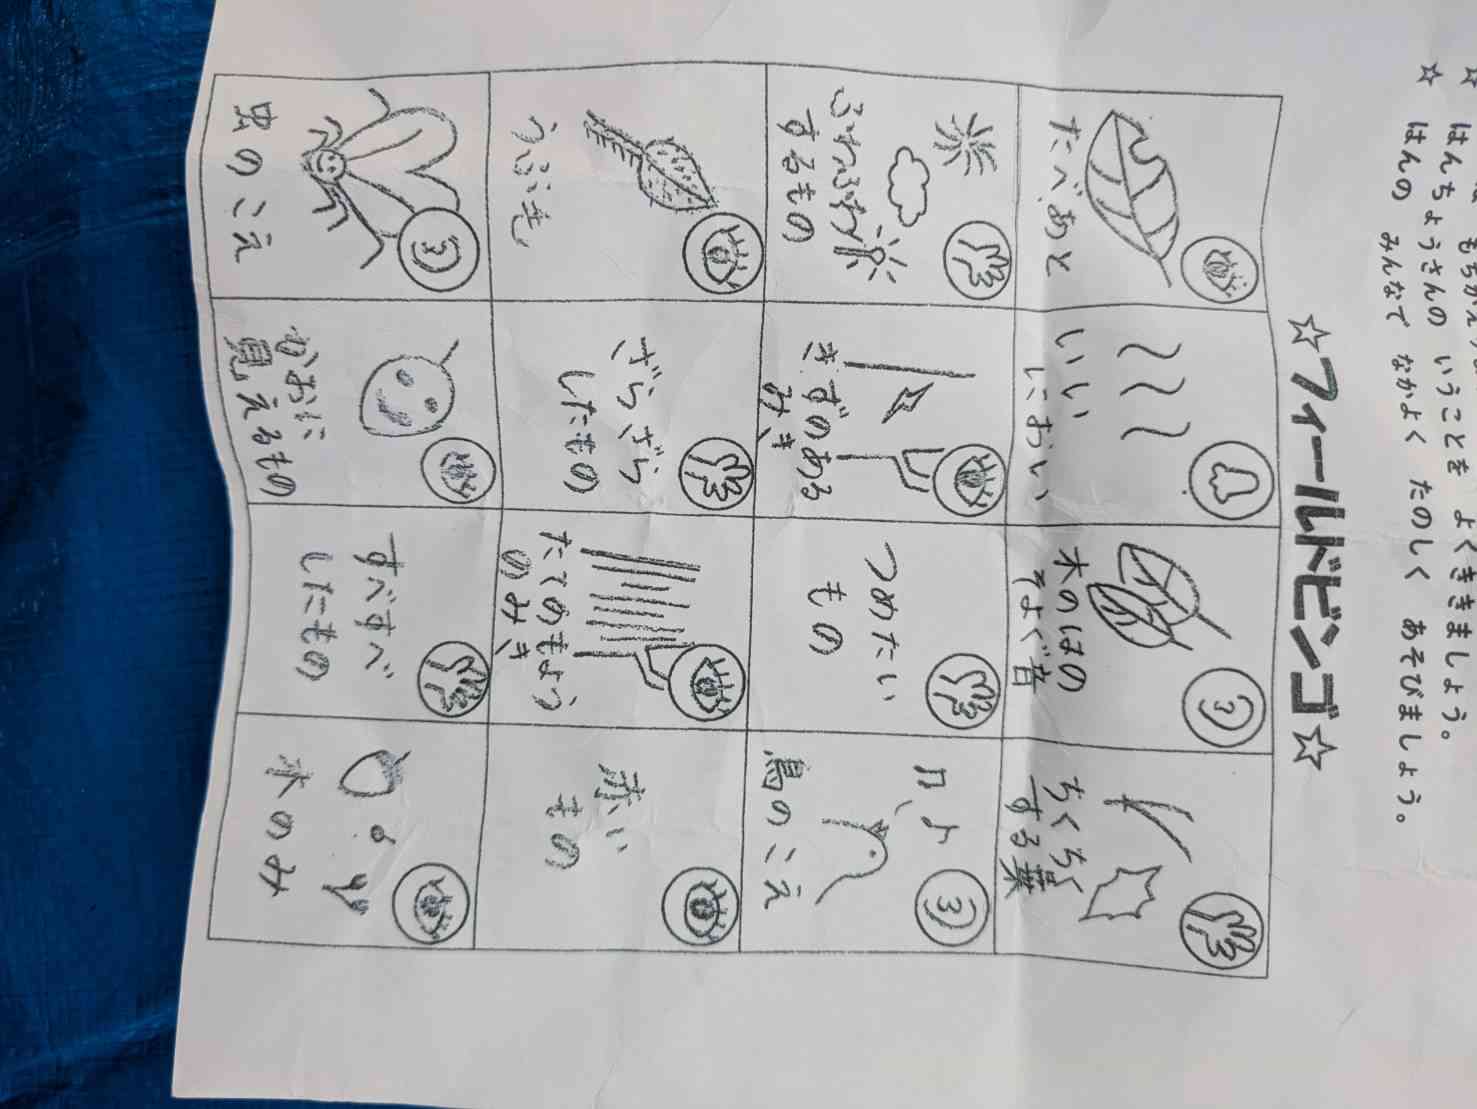 ☆ はんちょうさんの いうことを よくききましょう。
☆ はんの みんなで なかよく たのしく あそびましょう。
☆フィールドビンゴ☆
たべあと
いい
におい
木のはの
そよぐ音
ちくちく
する葉
ふわふわ
するもの
きずのある
みき
つめたい
もの
鳥のこえ
うぶ毛
ざらざら
したもの
たてのもよう
のみき
赤い
もの
虫のこえ
かおに
見えるもの
すべすべ
したもの
木のみ